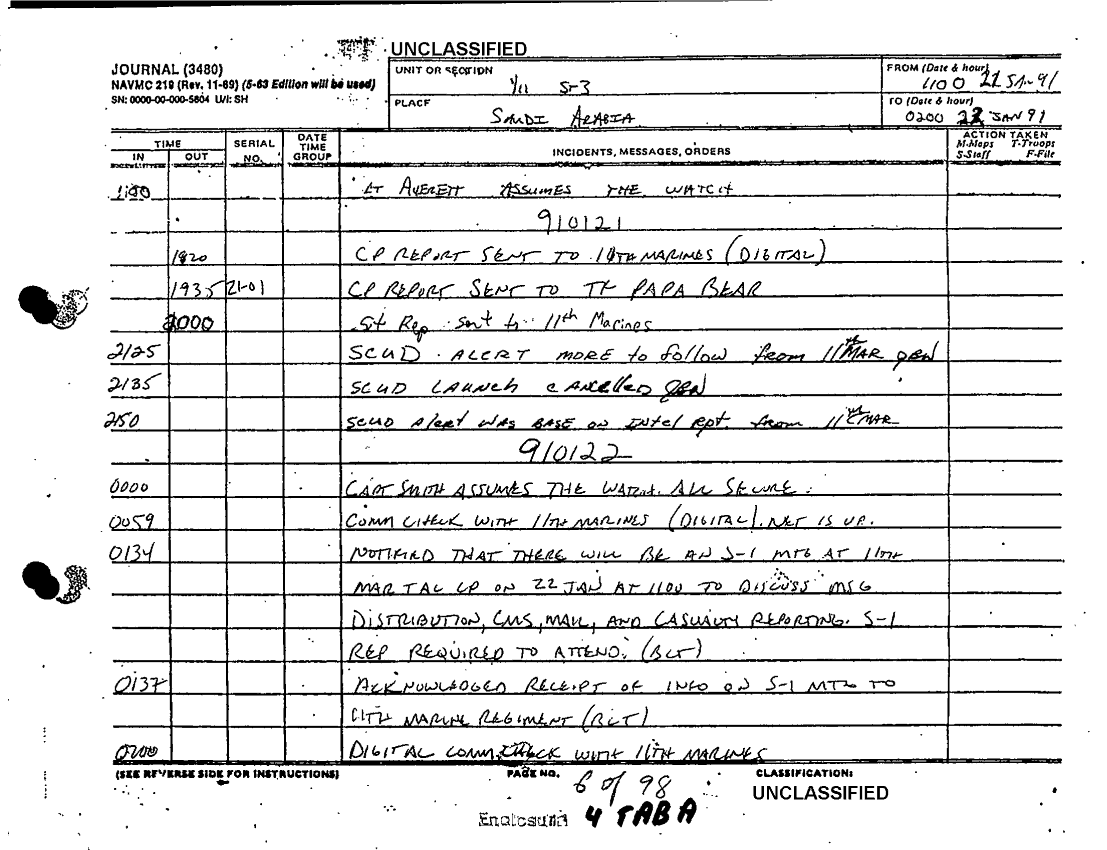 UNCLASSIFIED
JOURNAL (3480)
NAVMC 219 (Rev. 11-69) (5-63 Edition will be used)
SN: 0000-00-000-5604 U/I: SH
UNIT OR SECTION
1/11 S-3
FROM (Date & hour)
1100 21 JAN 91
PLACE
SAUDI ARABIA
TO (Date & hour)
0200 22 JAN 91
TIME
IN OUT
SERIAL NO.
DATE TIME GROUP
INCIDENTS, MESSAGES, ORDERS
ACTION TAKEN
M-Maps T-Troops
S-Staff F-File
LT AVERETT ASSUMES THE WATCH
910121
1920 CP REPORT SENT TO 11TH MARINES (DIGITAL)
1935 21-01 CP REPORT SENT TO TF PAPA BEAR
2000 Sit Rep sent to 11th Marines
2125 SCUD ALERT MORE to follow from 11th MAR
2135 SCUD LAUNCH CANCELLED
2150 SCUD Alert WAS BASE ON INtel Rpt. from 11th MAR
910122
0000 CAPT SMITH ASSUMES THE WATCH. ALL SECURE.
0059 COMM CHECK WITH 11TH MARINES (DIGITAL). NET IS UP.
0134 NOTIFIED THAT THERE WILL BE AN S-1 MTG AT 11TH
MAR TAC CP ON 22 JAN AT 1100 TO DISCUSS MSG
DISTRIBUTION, CMS, MAIL, AND CASUALTY REPORTING. S-1
REP REQUIRED TO ATTEND. (BCT)
0137 ACKNOWLEDGED RECEIPT OF INFO ON S-1 MTG TO
11TH MARINE REGIMENT (BCT)
0200 DIGITAL COMM CHECK WITH 11TH MARINES
(SEE REVERSE SIDE FOR INSTRUCTIONS)
PAGE NO.
6 of 98
CLASSIFICATION:
UNCLASSIFIED
Enclosure 4 TAB A